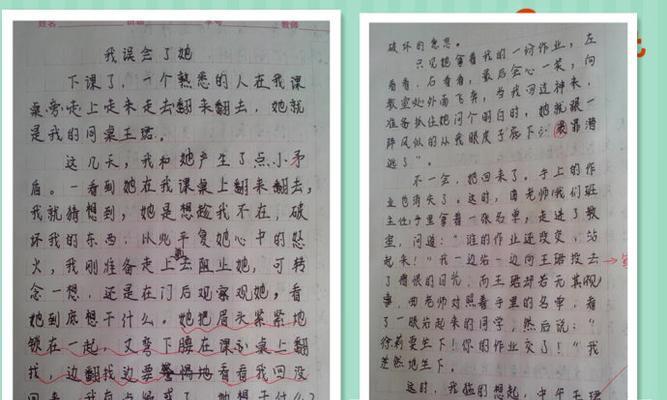 姓名
教师
我误会了她
下课了，一个熟悉的人在我课
桌旁走上走来走去翻来翻去，她就
是我的同桌王璐。
这几天，我和她产生了点小矛
盾。一看到她在我课桌上翻来翻去，
我就猜想到，她是想趁我不在，破
坏我的东西，以此平复她心中的怒
火，我刚准备走上去阻止她，可转
念一想，还是在门后观察观她，看
她到底想干什么。她把眉头紧紧地
锁在一起，又弯下腰在课桌上翻
找，边翻找边要警惕地看看我回没
破坏的意思。
只见她拿着我的一份作业，左
看看，右看看，最后会心一笑，向
教室处外面飞奔，当我回过神来，
准备抓住她问个明白时，她就跟一
阵风似的从我眼皮子底下"逃
远了"。
不一会，她回来了。手上的作
业也消失了。这时，老师(我们班
主任)手里拿着一张名单，走进了教
室，问道："谁的作业还没交，站
起来！"我一边站一边向王璐投去
了憎恨的目光，而王璐却若无其
事，老师对照着手里的名单，看
了一眼站起来的同学，然后说："
坐下！你的作业交了！"我
茫然地坐下。
这时，我猛的想起，中午王璐